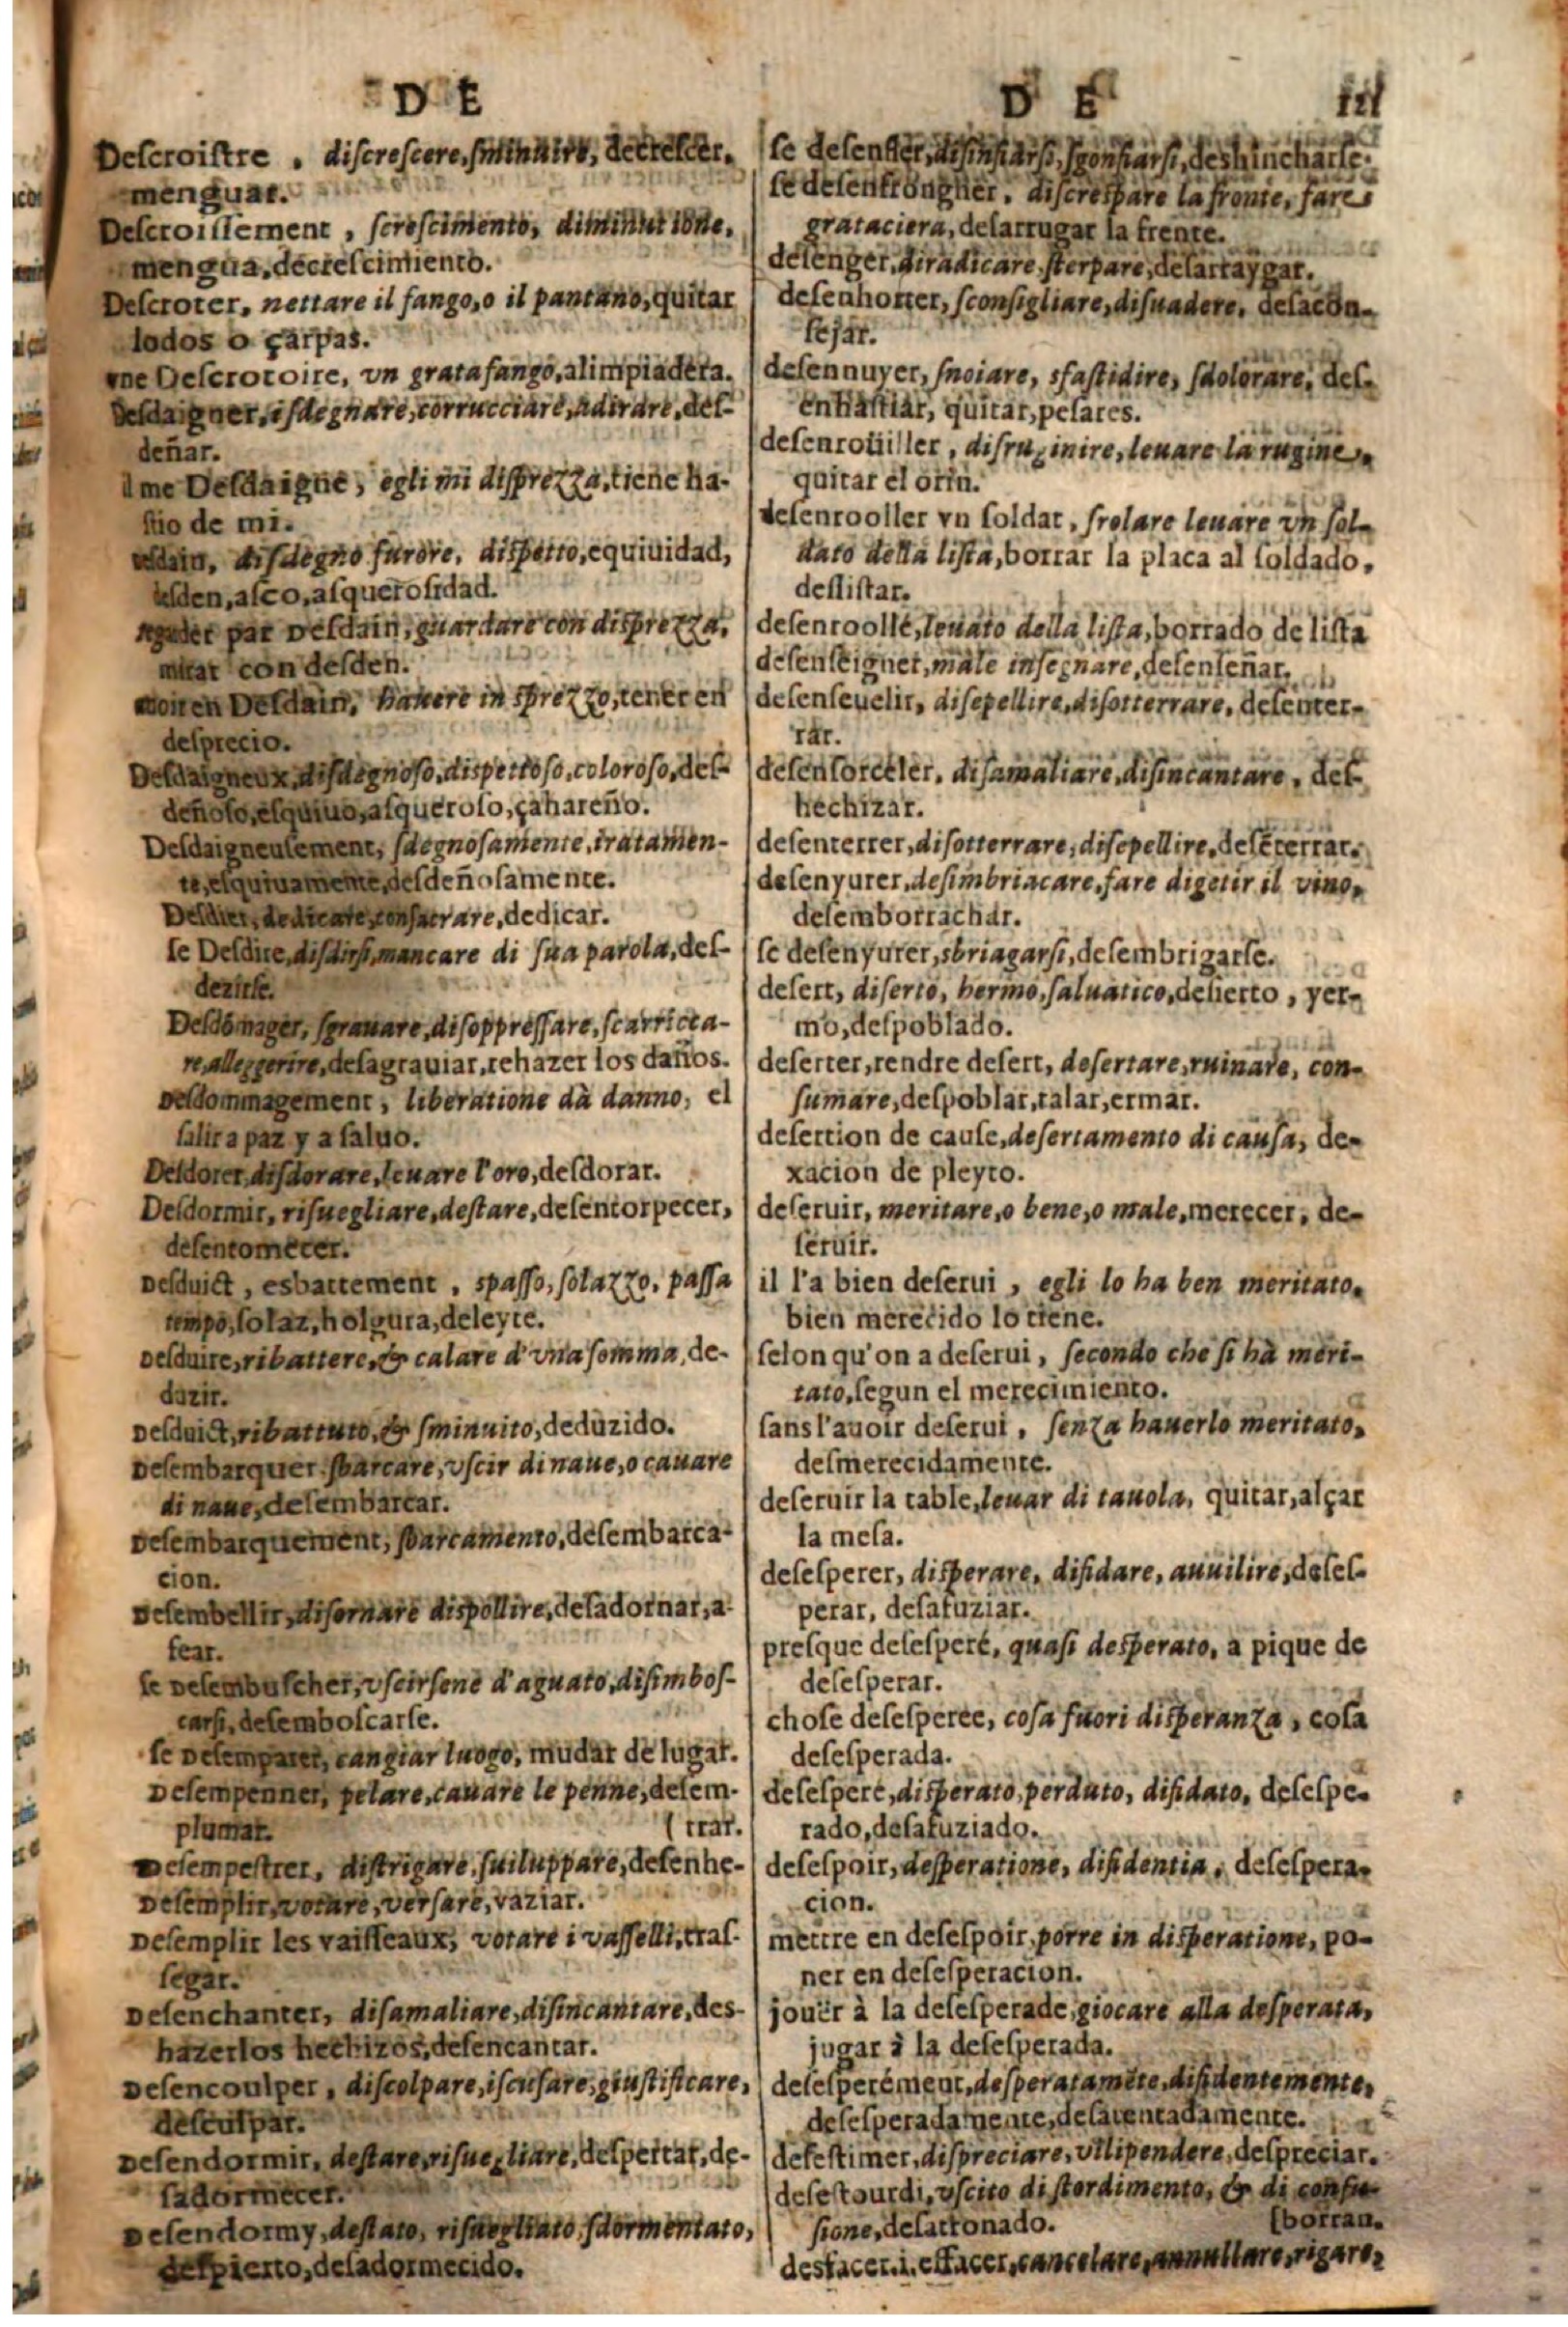 D E
Descroistre, discrescere, sminuire, decrescer,
menguar.
Descroissement, screscimento, diminutione,
mengua, decrescimiento.
Descroter, nettare il fango, o il pantano, quitar
lodos o çarpas.
vne Descrotoire, vn gratafango, alimpiadera.
Desdaigner, isdegnare, corrucciare, adirare, des-
deñar.
il me Desdaigne, egli mi disprezza, tiene ha-
stio de mi.
Desdain, disdegno furore, dispetto, equiuidad,
desden, asco, asquerosidad.
regarder par Desdain, guardare con disprezza,
mirar con desden.
auoir en Desdain, hauere in sprezzo, tener en
desprecio.
Desdaigneux, disdegnoso, dispettoso, coloroso, des-
deñoso, esquiuo, asqueroso, çahareño.
Desdaigneusement, sdegnosamente, iratamen-
te, esquiuamente, desdeñosamente.
Desdier, dedicare, consacrare, dedicar.
se Desdire, disdirsi, mancare di sua parola, des-
dezirse.
Desdōmager, sgrauare, disoppressare, scarrica-
re, alleggerire, desagrauiar, rehazer los daños.
Desdommagement, liberatione dà danno, el
salir a paz y a saluo.
Desdorer, disdorare, leuare l'oro, desdorar.
Desdormir, risuegliare, destare, desentorpecer,
desentomecer.
Desduict, esbattement, spasso, solazzo, passa
tempo, solaz, holgura, deleyte.
Desduire, ribattere, & calare d'vna somma, de-
duzir.
Desduict, ribattuto, & sminuito, deduzido.
Desembarquer sbarcare, vscir di naue, o cauare
di naue, desembarcar.
Desembarquement, sbarcamento, desembarca-
cion.
Desembellir, disornare dispollire, desadornar, a-
fear.
se Desembuscher, vscirsene d'aguato, disimbos-
carsi, desemboscarse.
se Desemparer, cangiar luogo, mudar de lugar.
Desempenner, pelare, cauare le penne, desem-
plumar. (trar.
Desempestrer, distrigare, suiluppare, desenhe-
Desemplir, votare, versare, vaziar.
Desemplir les vaisseaux, votare i vasselli, tras-
segar.
Desenchanter, disamaliare, disincantare, des-
hazer los hechizos, desencantar.
Desencoulper, discolpare, iscusare, giustificare,
desculpar.
Desendormir, destare, risuegliare, despertar, de-
sadormecer.
Desendormy, destato, risuegliato, sdormentato,
despierto, desadormecido.
D E
se desenfler, disinfiarsi, sgonfiarsi, deshincharse.
se desenfrongner, discrespare la fronte, fare
grataciera, desarrugar la frente.
desenger, diradicare, sterpare, desarraygar.
desenhorter, sconsigliare, disuadere, desacon-
sejar.
desennuyer, snoiare, sfastidire, sdolorare, des-
enhastiar, quitar, pesares.
desenroüiller, disruginire, leuare la rugine,
quitar el orin.
desenrooller vn soldat, srolare leuare vn sol-
dato della lista, borrar la placa al soldado,
deslistar.
desenroollé, leuato della lista, borrado de lista
desenseigner, male insegnare, desenseñar.
desenseuelir, disepellire, disotterrare, desenter-
rar.
desensorceler, disamaliare, disincantare, des-
hechizar.
desenterrer, disotterrare, disepellire, desēterrar.
desenyurer, desimbriacare, fare digetir il vino,
desemborrachar.
se desenyurer, sbriagarsi, desembrigarse.
desert, diserto, hermo, saluatico, desierto, yer-
mo, despoblado.
deserter, rendre desert, desertare, ruinare, con-
sumare, despoblar, talar, ermar.
desertion de cause, desertamento di causa, de-
xacion de pleyto.
deseruir, meritare, o bene, o male, merecer, de-
seruir.
il l'a bien deserui, egli lo ha ben meritato,
bien merecido lo tiene.
selon qu'on a deserui, secondo che si hà meri-
tato, segun el merecimiento.
sans l'auoir deserui, senza hauerlo meritato,
desmerecidamente.
deseruir la table, leuar di tauola, quitar, alçar
la mesa.
desesperer, disperare, disfidare, auuilire, deses-
perar, desafuziar.
presque desesperé, quasi desperato, a pique de
desesperar.
chose desesperee, cosa fuori disperanza, cosa
desesperada.
desesperé, disperato, perduto, disfidato, desespe-
rado, desafuziado.
desespoir, desperatione, disfidentia, desespera-
cion.
mettre en desespoir, porre in disperatione, po-
ner en desesperacion.
jouër à la desesperade, giocare alla desperata,
jugar à la desesperada.
desesperément, desperatamēte, disfidentemente,
desesperadamente, desatentadamente.
desestimer, dispreciare, vilipendere, despreciar.
desestourdi, vscito di stordimento, & di confu-
sione, desattonado. (borran.
desfacer. i. effacer, cancelare, annullare, rigare,